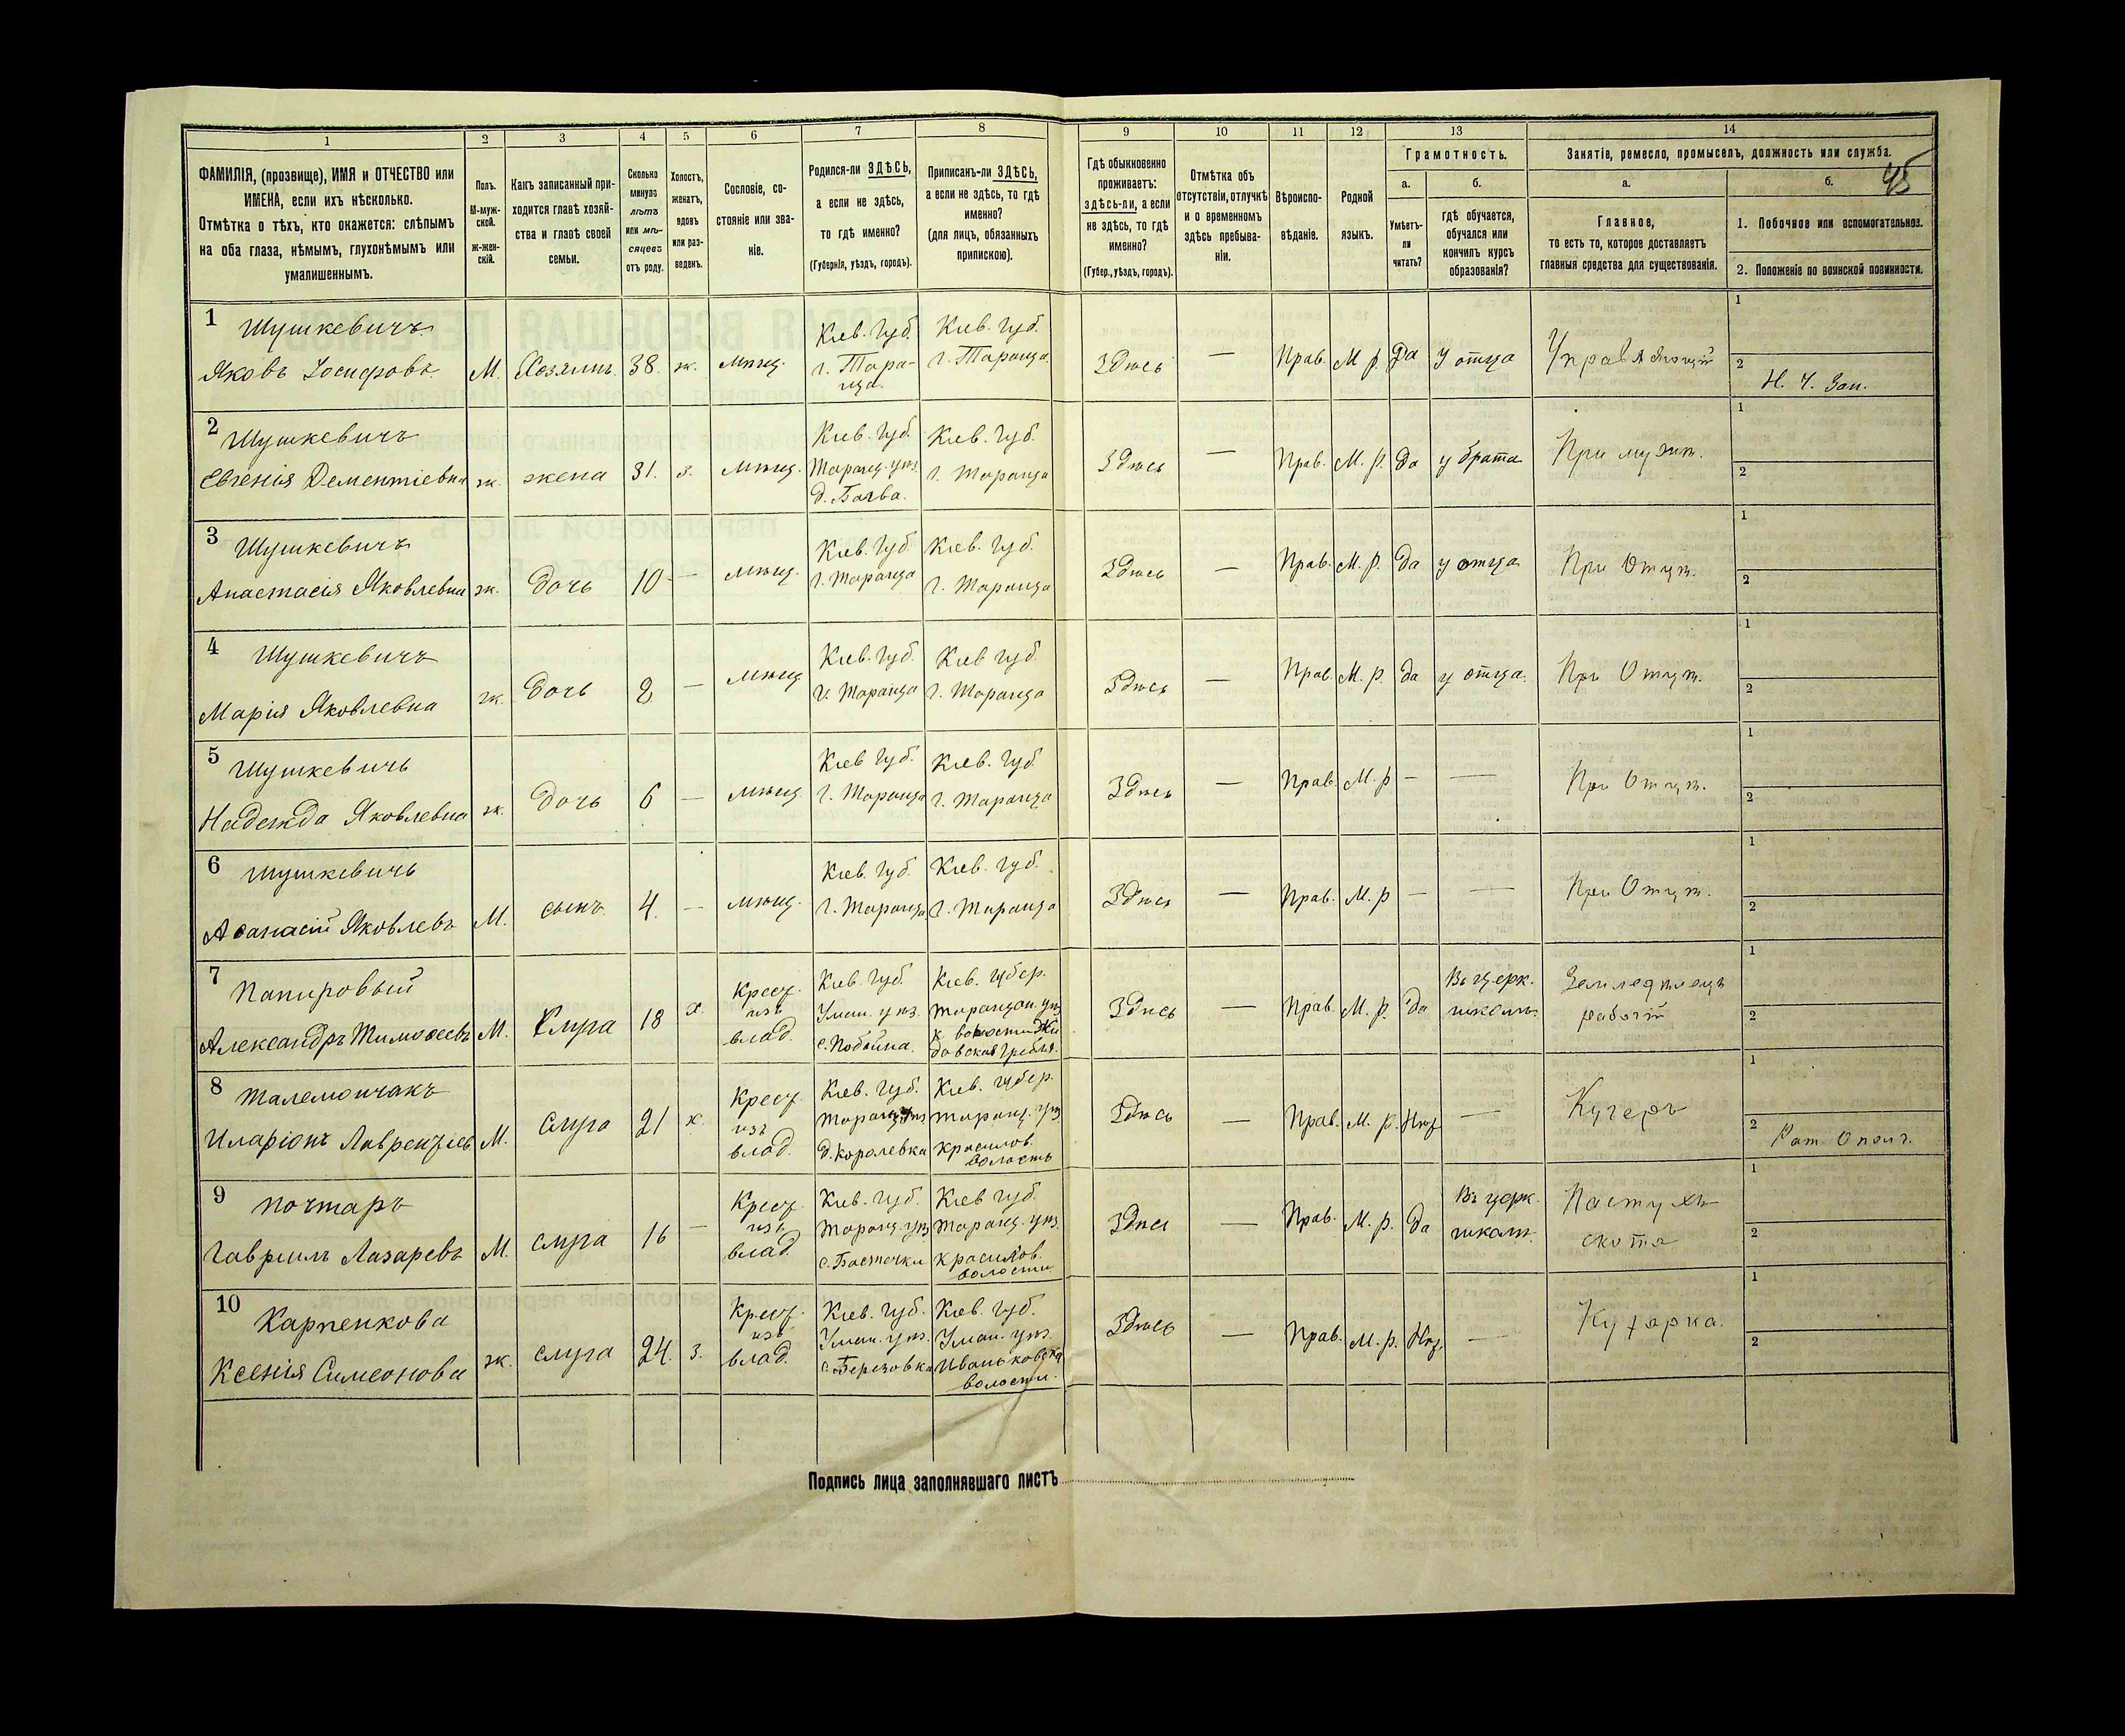 1 2 3 4 5 6 7 8 9 10 11 12 13 14
ФАМИЛІЯ, (прозвище), ИМЯ и ОТЧЕСТВО или
ИМЕНА, если ихъ нѣсколько.
Отмѣтка о тѣхъ, кто окажется: слѣпымъ
на оба глаза, нѣмымъ, глухонѣмымъ или
умалишеннымъ.
Полъ.
М-муж-
ской.
Ж-жен-
скій.
Какъ записанный при-
ходится главѣ хозяй-
ства и главѣ своей
семьи.
Сколько
минуло
лѣтъ
или мѣ-
сяцевъ
отъ роду.
Холостъ,
женатъ,
вдовъ
или раз-
веденъ.
Сословіе, со-
стояніе или зва-
ніе.
Родился-ли ЗДѢСЬ,
а если не здѣсь,
то гдѣ именно?
(Губернія, уѣздъ, городъ).
Приписанъ-ли ЗДѢСЬ,
а если не здѣсь, то гдѣ
именно?
(для лицъ, обязанныхъ
припискою).
Гдѣ обыкновенно
проживаетъ:
здѣсь-ли, а если
не здѣсь, то гдѣ
именно?
(Губер., уѣздъ, городъ).
Отмѣтка объ
отсутствіи, отлучкѣ
и о временномъ
здѣсь пребыва-
ніи.
Вѣроиспо-
вѣданіе.
Родной
языкъ.
Грамотность.
а.
Умѣетъ-
ли
читать?
б.
гдѣ обучается,
обучался или
кончилъ курсъ
образованія?
Занятіе, ремесло, промыселъ, должность или служба.
а.
Главное,
то есть то, которое доставляетъ
главныя средства для существованія.
б.
45
1. Побочное или вспомогательное.
2. Положеніе по воинской повинности.
1 Шушкевичъ
Яковъ Іосифовъ М. Хозяинъ 38. ж. мѣщ.
Кіев. Губ.
г. Тара-
ща
Кіев. Губ.
г. Тараща
Здѣсь — Прав. М. р. Да У отца Управляющій
1
2
Н. Ч. Зап.
2 Шушкевичъ
Евгенія Дементіевна ж. жена 31. з. мѣщ.
Кіев. Губ.
Таращ. уѣз.
д. Бачва.
Кіев. Губ.
г. Тараща
Здѣсь — Прав. М. р. да у брата При мужѣ.
1
2
3 Шушкевичъ
Анастасія Яковлевна ж. дочь 10 — мѣщ.
Кіев. Губ.
г. Тараща
Кіев. Губ.
г. Тараща
Здѣсь — Прав. М. р. да у отца При Отцѣ.
1
2
4 Шушкевичъ
Марія Яковлевна ж. дочь 8 — мѣщ
Кіев. Губ.
г. Тараща
Кіев Губ.
г. Тараща
Здѣсь — Прав. М. р. да у отца. При Отцѣ.
1
2
5 Шушкевичъ
Надежда Яковлевна ж. дочь 6 — мѣщ
Кіев Губ.
г. Тараща
Кіев. Губ.
г. Тараща
Здѣсь — Прав. М. р — — При Отцѣ.
1
2
6 Шушкевичъ
Аѳанасій Яковлевъ М. сынъ 4. — мѣщ.
Кіев. Губ.
г. Тараща
Кіев. Губ.
г. Тараща
Здѣсь — Прав. М. р — — При Отцѣ.
1
2
7 Папировый
Александръ Тимоѳеевъ М. Слуга 18 х.
Крест.
изъ
влад.
Кіев. Губ.
Уман. уѣз.
с. Побойна.
Кіев. губер.
Таращан. уѣз.
к волости Жи
довская Гребля.
Здѣсь — Прав. М. р. да
Въ церк.
школѣ.
Земледѣлецъ
рабочій
1
2
8
Иларіонъ Лаврентіев М. Слуга 21 х.
Крест.
изъ
влад.
Кіев. Губ.
Таращ. уѣз
д. Королевка
Кіев. губер.
Таращ. уѣз
Красилов.
волость
Здѣсь — Прав. М. р. Нѣт — Кучеръ
1
2
Рат Опол.
9 Почтаръ
Гавріилъ Лазаревъ М. слуга 16 —
Крест.
изъ
влад.
Кіев. Губ.
Таращ. уѣз
с. Бастечки
Кіев Губ.
Таращ. уѣз.
Красилов.
волости.
Здѣсь — Прав. М. р. да
Въ церк.
школѣ.
Пастухъ
скота
1
2
10 Карпенкова
Ксенія Симеонова ж. слуга 24. з.
Крест.
изъ
влад.
Кіев. Губ.
Уман. уѣз.
с. Березовка
Кіев. Губ.
Уман. уѣз.
Иваньковска
волости.
Здѣсь — Прав. М. р. Нѣт. — Кухарка.
1
2
Подпись лица заполнявшаго листъ